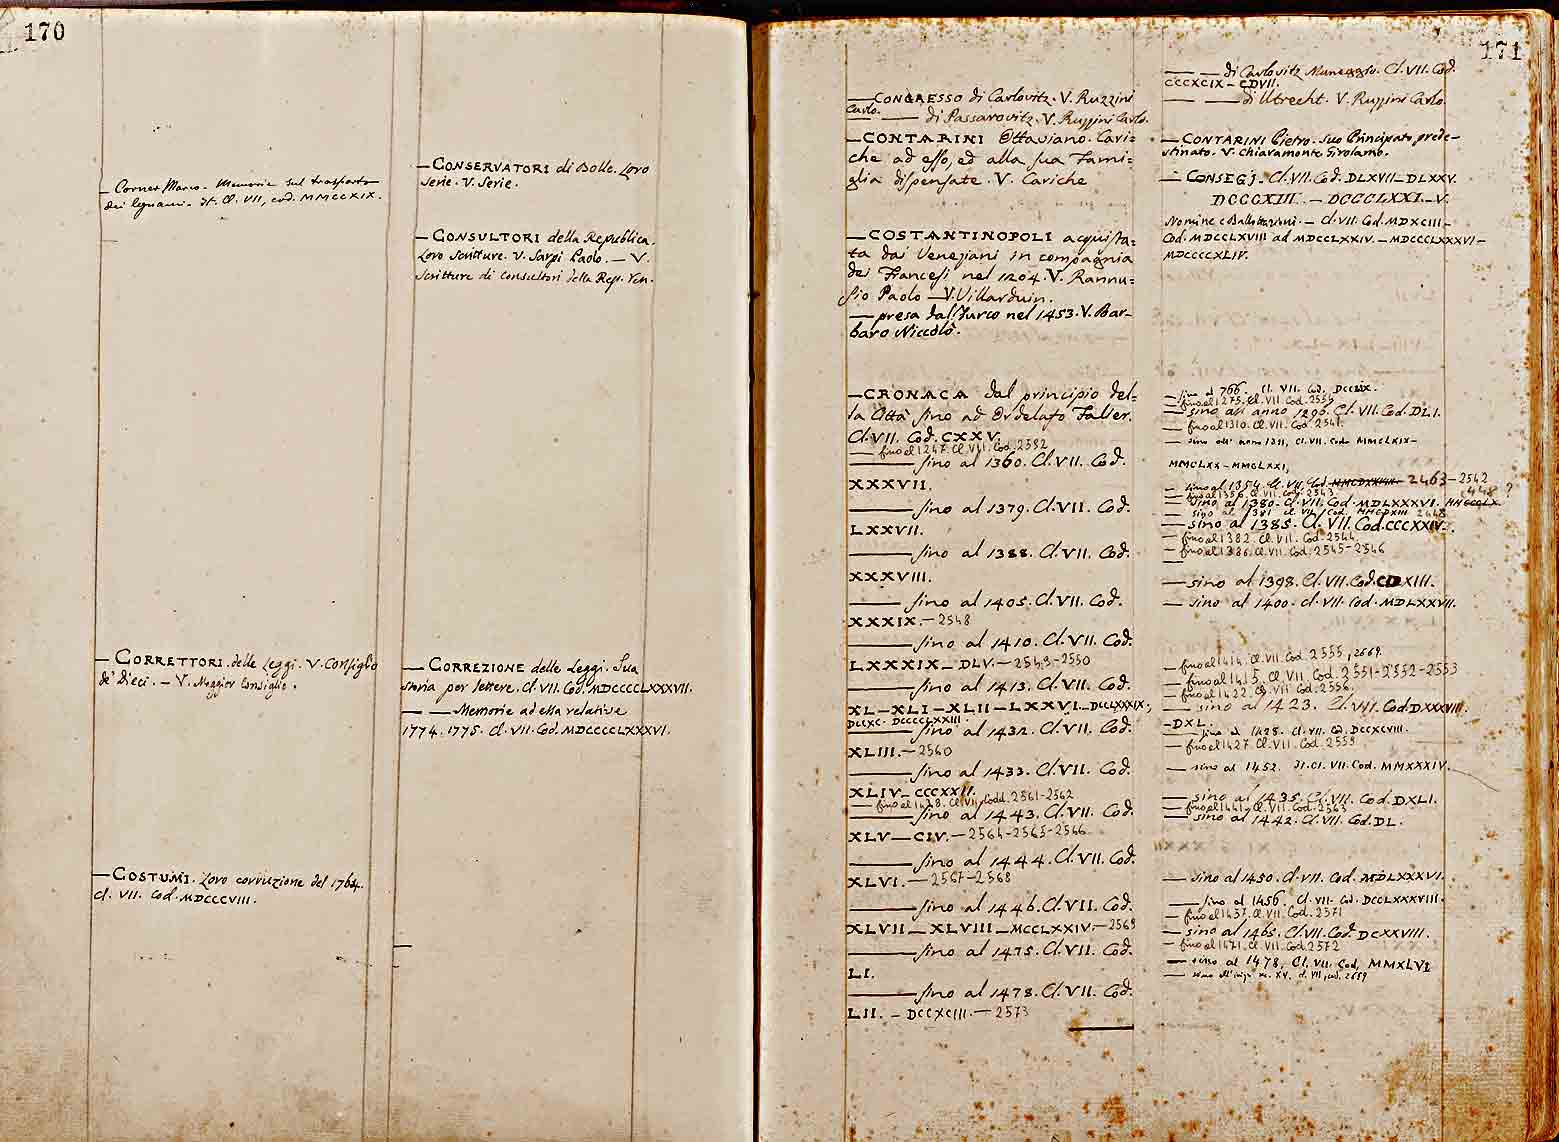 170
— Corner Marco. Memorie sul trasporto
dei legnami. It. Cl. VII, cod. MMCCXIX.
— CORRETTORI delle Leggi. V. Consiglio
de' Dieci. — V. Maggior Consiglio.
— COSTUMI. Loro corruzione del 1764.
Cl. VII. Cod. MDCCCVIII.
— CONSERVATORI di Bolle. Loro
Serie. V. Serie.
— CONSULTORI della Republica.
Loro Scritture. V. Sarpi Paolo. — V.
Scritture di Consultori della Rep. Ven.
— CORREZIONE delle Leggi. Sua
storia per lettere. Cl. VII. Cod. MDCCCCLXXXVII.
— — Memorie ad essa relative
1774. 1775. Cl. VII. Cod. MDCCCCLXXXVI.
171
— CONGRESSO di Carlovitz. V. Ruzzini
Carlo. — di Passarovitz. V. Ruzzini Carlo.
— CONTARINI Ottaviano. Cari=
che ad esso, ed alla sua Fami=
glia dispensate. V. Cariche
— COSTANTINOPOLI acquista=
ta dai Veneziani in compagnia
dei Francesi nel 1204. V. Rannu=
sio Paolo — V. Villarduin.
— presa dal Turco nel 1453. V. Bar-
baro Niccolò.
— CRONACA dal principio del=
la Città sino ad Ordelafo Falier.
Cl. VII. Cod. CXXV.
— fino al 1247. Cl. VII. Cod. 2592
— sino al 1360. Cl. VII. Cod.
XXXVII.
— sino al 1379. Cl. VII. Cod.
LXXVII.
— sino al 1388. Cl. VII. Cod.
XXXVIII.
— sino al 1405. Cl. VII. Cod.
XXXIX. — 2548
— sino al 1410. Cl. VII. Cod.
LXXXIX — DLV. — 2549 — 2550
— sino al 1413. Cl. VII. Cod.
XL — XLI — XLII — LXXVI — DCCLXXXIX.
DCCXC. DCCCCLXXIII.
— sino al 1432. Cl. VII. Cod.
XLIII. — 2560
— sino al 1433. Cl. VII. Cod.
XLIV — CCCXXII.
— fino al 1428. Cl. VII. Codd. 2561-2562
— sino al 1443. Cl. VII. Cod.
XLV — CIV. — 2564-2565-2566
— sino al 1444. Cl. VII. Cod.
XLVI. — 2567-2568
— sino al 1446. Cl. VII. Cod.
XLVII — XLVIII — MCCLXXIV. — 2569
— sino al 1475. Cl. VII. Cod.
LI.
— sino al 1478. Cl. VII. Cod.
LII. — DCCXCIII. — 2573
— — di Carlovitz Cl. VII. Cod.
CCCXCIX — CDVII.
— — di Utrecht. V. Ruzzini Carlo.
— CONTARINI Pietro. Suo Principato prede-
stinato. V. Chiaramonte Girolamo.
— CONSEGJ. Cl. VII. Cod. DLXVII — DLXXV.
DCCCXIII. — DCCCLXXI. — V.
Nomine e Ballottazioni. — Cl. VII. Cod. MDXCIII —
Cod. MDCCLXVIII ad MDCCLXXIV. — MDCCCLXXXVI —
MDCCCCXLIV.
— sino al 766. Cl. VII. Cod. DCCLIX.
— fino al 1275. Cl. VII. Cod. 2559
— sino all' anno 1296. Cl. VII. Cod. DLI.
— fino al 1310. Cl. VII. Cod. 2541.
— sino all' anno 1311, Cl. VII. Cod. MMCLXIX —
MMCLXX — MMCLXXI,
— sino al 1354. Cl. VII. Cod. 2463 — 2542
— fino al 1356. Cl. VII. Cod. 2543
— sino al 1380. Cl. VII. Cod. MDLXXXVI. 2448 ?
— sino al 1381 Cl. VII. Cod. MMCDXIII 2448
— sino al 1385. Cl. VII. Cod. CCCXXIV.
— fino al 1382. Cl. VII. Cod. 2544
— fino al 1386. Cl. VII. Cod. 2545-2546
— sino al 1398. Cl. VII. Cod. CDXIII.
— sino al 1400. Cl. VII. Cod. MDLXXVII.
— fino al 1414. Cl. VII. Cod. 2555, 2669.
— fino al 1415. Cl. VII. Cod. 2551-2552-2553
— fino al 1422. Cl. VII. Cod. 2556.
— sino al 1423. Cl. VII. Cod. DXXXVIII.
— DXL.
— sino al 1428. Cl. VII. Cod. DCCXCVIII.
— fino al 1427. Cl. VII. Cod. 2559
— sino al 1452. It. Cl. VII. Cod. MMXXXIV.
— sino al 1435. Cl. VII. Cod. DXLI.
— fino al 1441. Cl. VII. Cod. 2563
— sino al 1442. Cl. VII. Cod. DL.
— sino al 1450. Cl. VII. Cod. MDLXXXVI.
— sino al 1456. Cl. VII. Cod. DCCLXXXVIII.
— fino al 1437. Cl. VII. Cod. 2571
— sino al 1465. Cl. VII. Cod. DCXXVIII.
— fino al 1471. Cl. VII. Cod. 2572
— sino al 1478. Cl. VII. Cod. MMXLVI
— sino all' sec. XV. cl. VII, cod. 2659